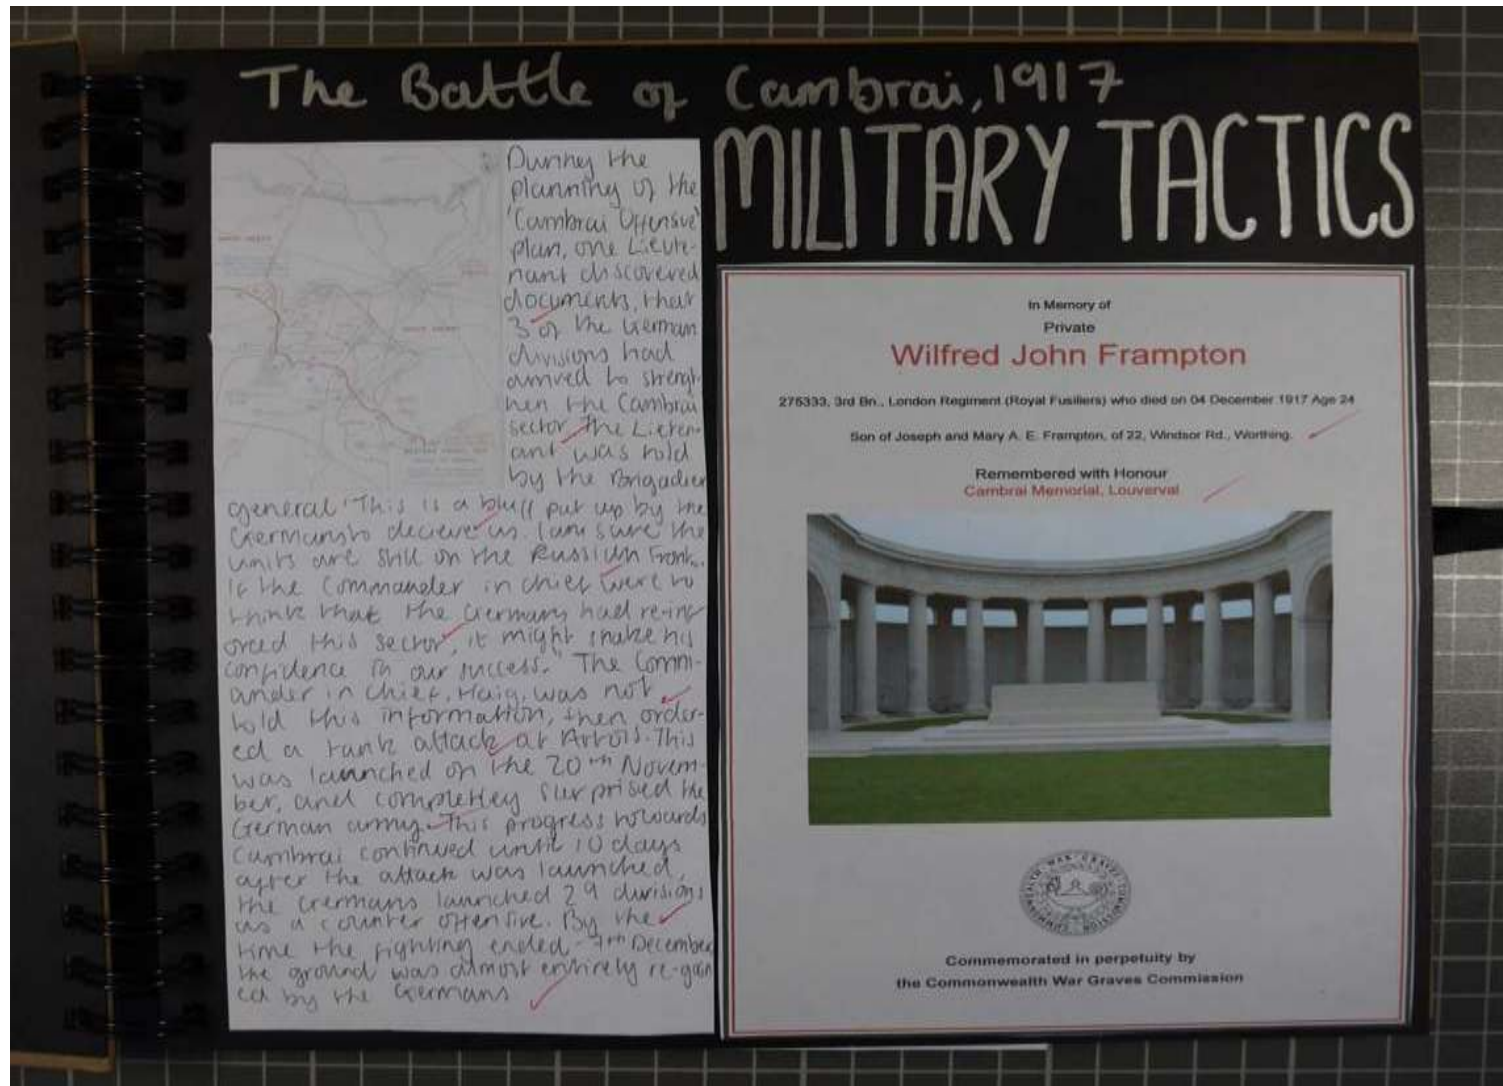 The Battle of Cambrai, 1917
MILITARY TACTICS
During the
planning of the
'Cambrai Offensive'
plan, one Lieute-
nant discovered
documents, that
3 of the German
divisions had
arrived to strengt-
hen the Cambrai
sector. The Lieten-
ant was told
by the Brigadier
general "This is a bluff put up by the
Germans to decieve us. I am sure the
units are still on the Russian Front.
If the Commander in chief were to
think that the Germans had re-inf-
orced this sector, it might shake his
confidence in our success." The Comm-
ander in chief, Haig, was not
told this information, then order-
ed a tank attack at Artois. This
was launched on the 20th Novem-
ber, and completley surprised the
German army. This progress towards
Cambrai continued until 10 days
after the attack was launched,
the Germans launched 29 divisions
as a counter offensive. By the
time the fighting ended - 7th December
the ground was almost entirely re-gain
ed by the Germans
In Memory of
Private
Wilfred John Frampton
275333, 3rd Bn., London Regiment (Royal Fusiliers) who died on 04 December 1917 Age 24
Son of Joseph and Mary A. E. Frampton, of 22, Windsor Rd., Worthing.
Remembered with Honour
Cambrai Memorial, Louverval
Commemorated in perpetuity by
the Commonwealth War Graves Commission